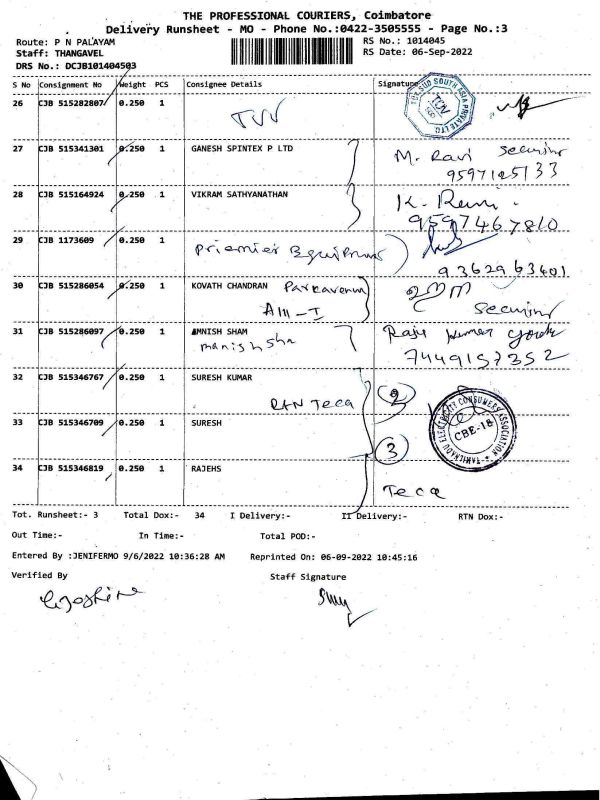 THE PROFESSIONAL COURIERS, Coimbatore
Delivery Runsheet - MO - Phone No.:0422-3505555 - Page No.:3
Route: P N PALAYAM
RS No.: 1014045
Staff: THANGAVEL
RS Date: 06-Sep-2022
DRS No.: DCJB101404503
S No Consignment No Weight PCS Consignee Details Signature
26 CJB 515282807 0.250 1 TUV
TÜV SÜD SOUTH ASIA PRIVATE LTD
27 CJB 515341301 0.250 1 GANESH SPINTEX P LTD M. Ravi
9597125133
28 CJB 515164924 0.250 1 VIKRAM SATHYANATHAN K. Ravi
9597467810
29 CJB 1173609 0.250 1 Premier
9362963401
30 CJB 515286054 0.250 1 KOVATH CHANDRAN
AIII-I
31 CJB 515286097 0.250 1 AMNISH SHAM Raju Kumar
manish sha 7449157352
32 CJB 515346767 0.250 1 SURESH KUMAR
Teca 2
33 CJB 515346709 0.250 1 SURESH
3
TAMILNADU ELECTRICITY CONSUMERS ASSOCIATION
CBE-18
34 CJB 515346819 0.250 1 RAJEHS
Teca
Tot. Runsheet:- 3 Total Dox:- 34 I Delivery:- II Delivery:- RTN Dox:-
Out Time:- In Time:- Total POD:-
Entered By :JENIFERMO 9/6/2022 10:36:28 AM Reprinted On: 06-09-2022 10:45:16
Verified By Staff Signature